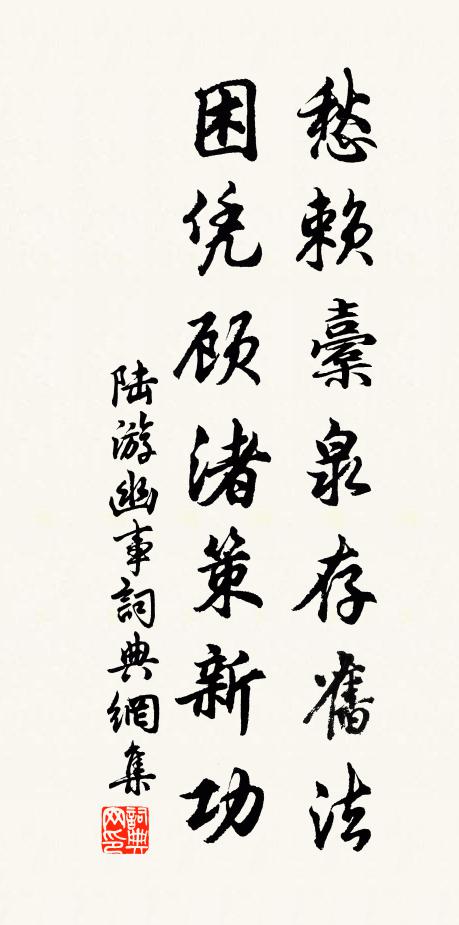 愁赖橐泉存舊法
困凭顾渚策新功
陆游幽事詞典網集
詞典网印